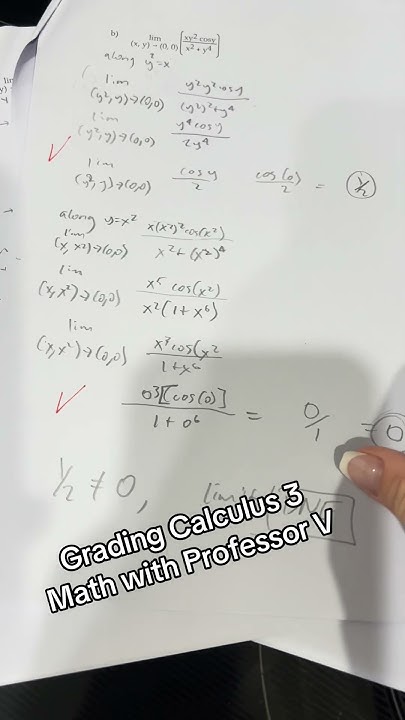 b) lim (x, y)→(0, 0) [xy² cosy / x² + y⁴]
along y²=x
lim (y², y)→(0,0) y²y²cosy / (y²)²+y⁴
lim (y², y)→(0,0) y⁴cosy / 2y⁴
lim (y², y)→(0,0) cosy / 2 cos(0) / 2 = 1/2
along y=x²
lim (x, x²)→(0,0) x(x²)²cos(x²) / x²+(x²)⁴
lim (x, x²)→(0,0) x⁵ cos(x²) / x²(1+x⁶)
lim (x, x²)→(0,0) x³cos(x² / 1+x⁶
0³[cos(0)] / 1+0⁶ = 0/1 = 0
1/2 ≠ 0, DNE
Grading Calculus 3
Math with Professor V